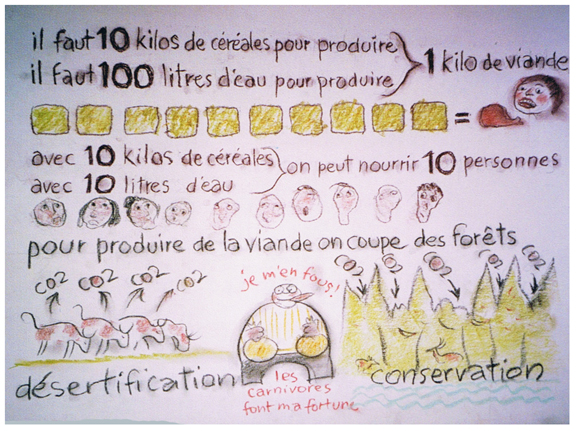 il faut 10 kilos de céréales pour produire
il faut 100 litres d'eau pour produire
1 kilo de viande
=
avec 10 kilos de céréales
avec 10 litres d'eau
on peut nourrir 10 personnes
pour produire de la viande on coupe des forêts
CO2 CO2 CO2 CO2
je m'en fous!
CO2 CO2 CO2 CO2
désertification
les
carnivores
font ma fortune
conservation